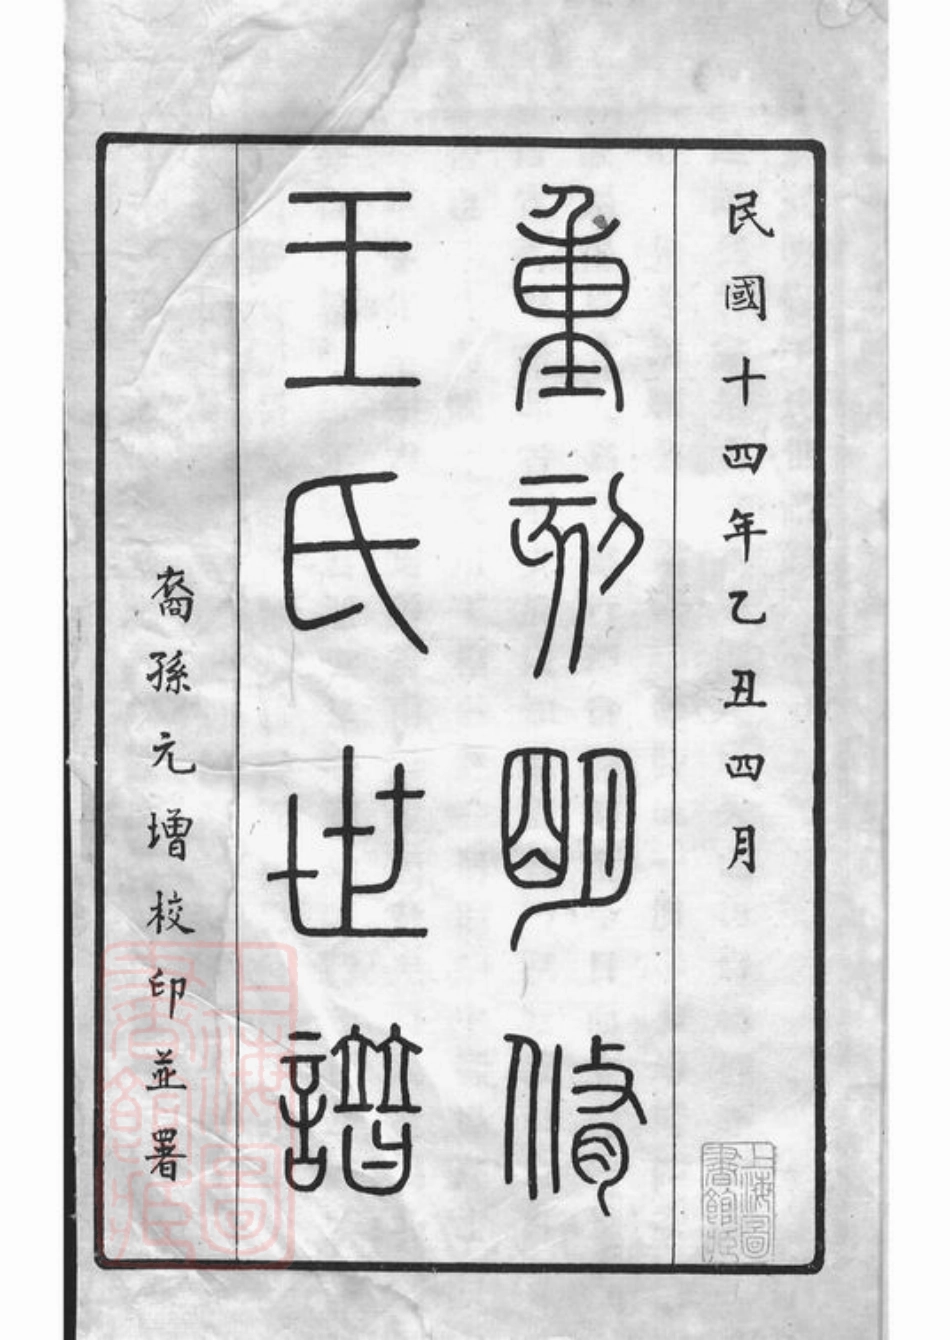 民國十四年乙丑四月
重刻明脩
王氏世譜
裔孫元增校印並署
上海圖書館藏
上海圖書館藏